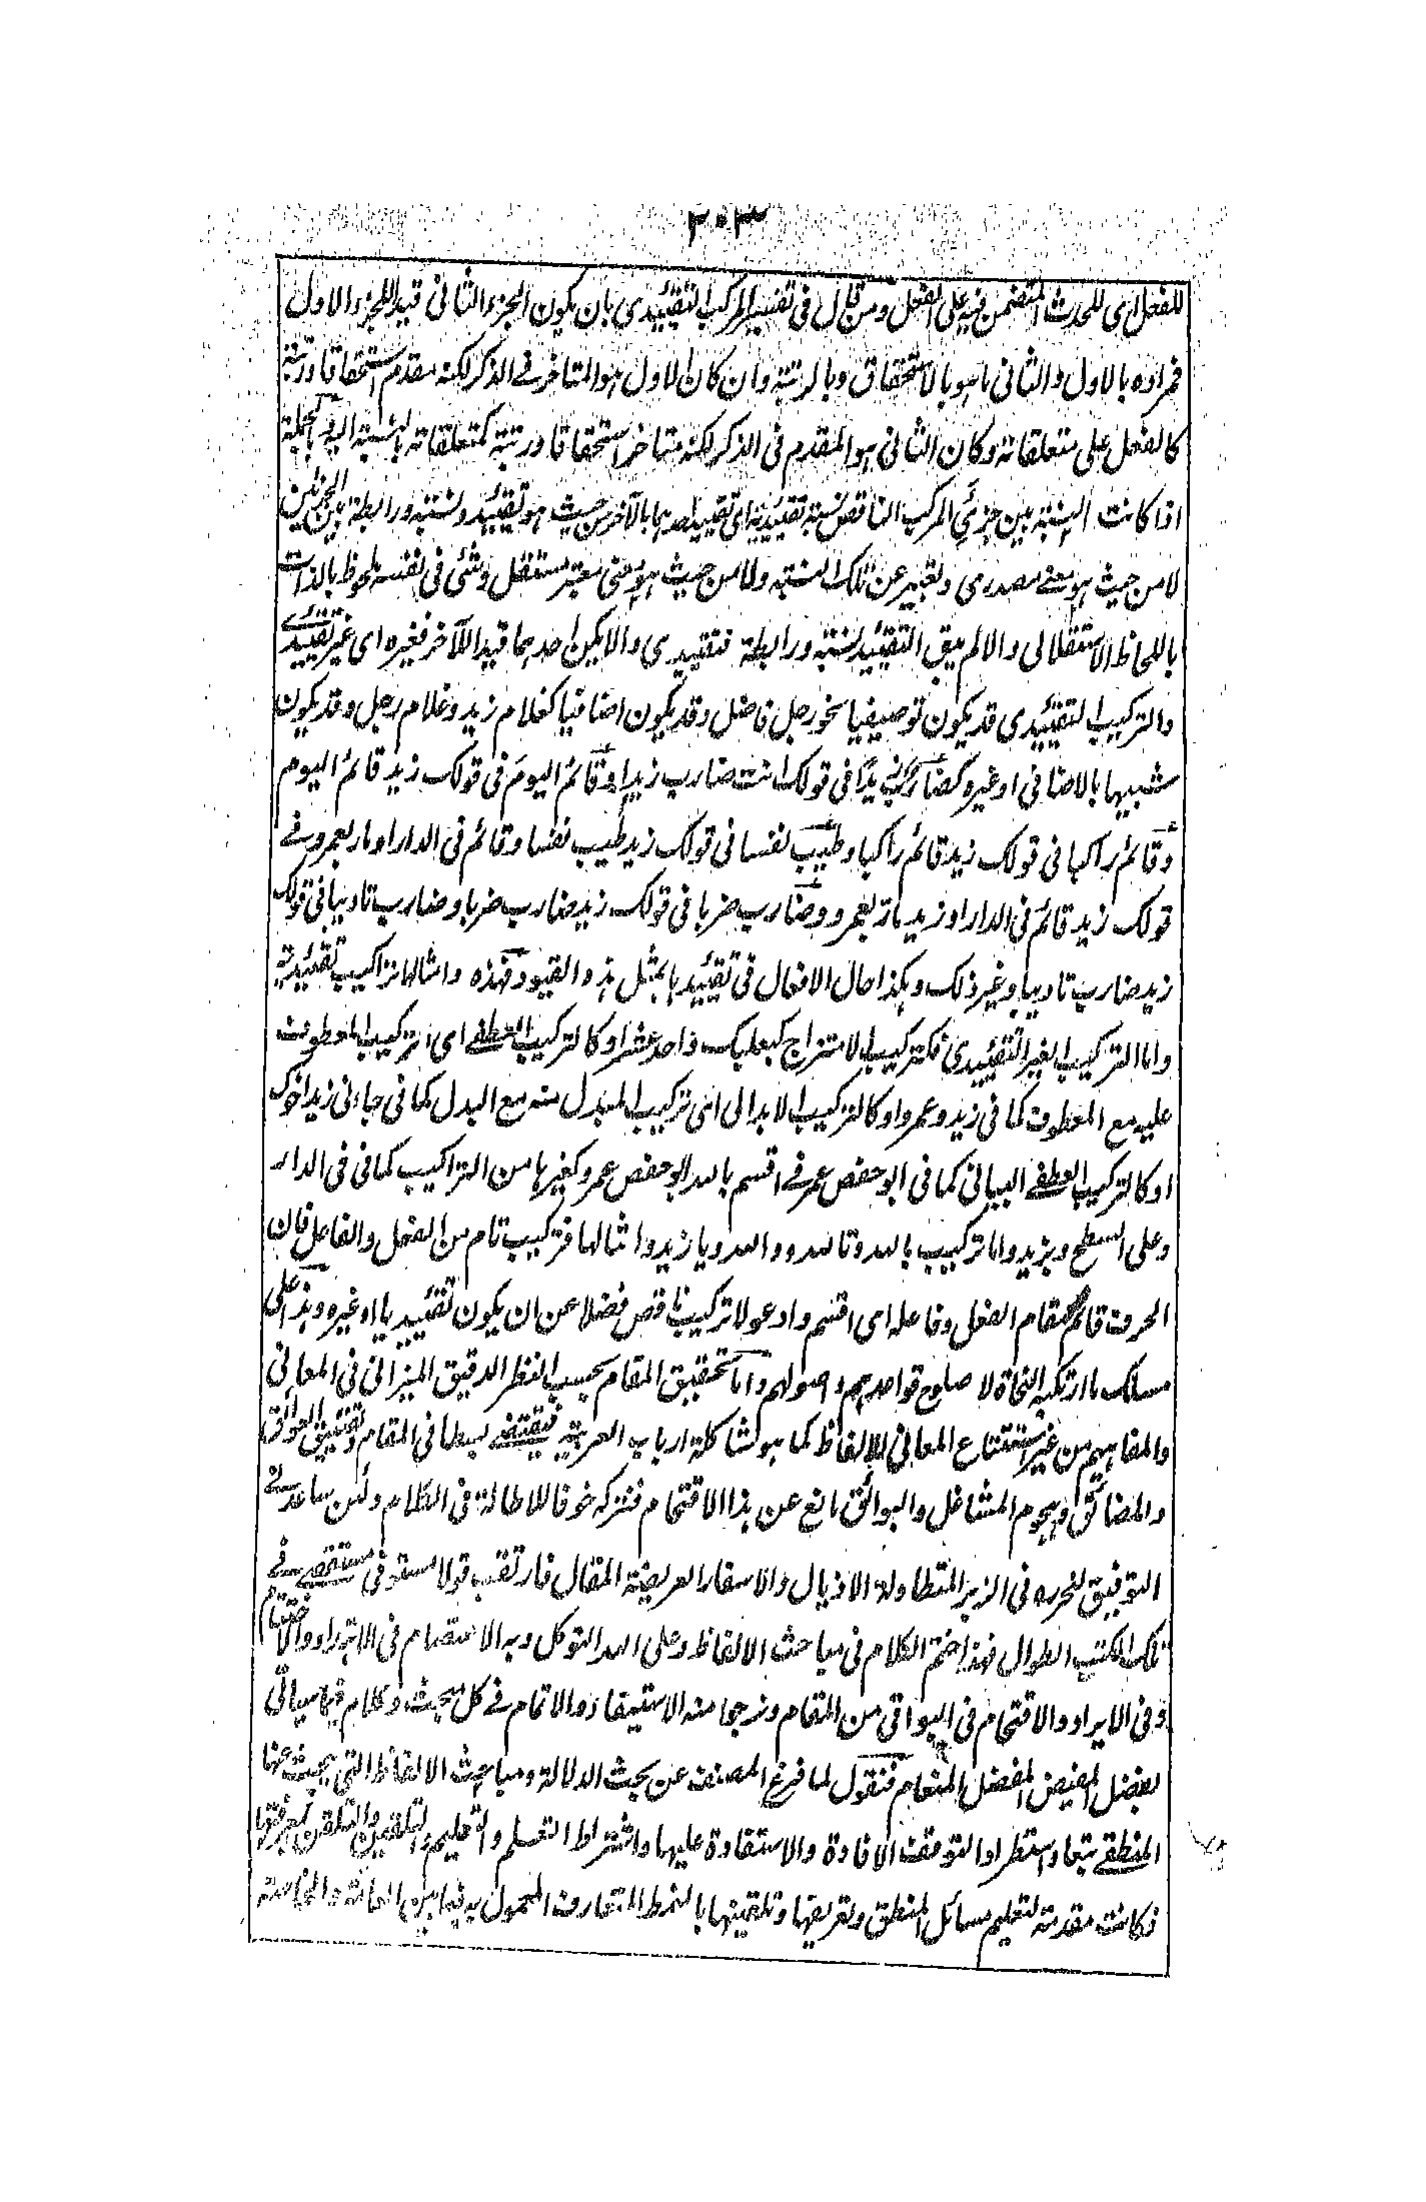 ٣٠٣
للفعل اى للحدث المتضمن فيه على الفعل ومن قال فى تفسير المركب التقييدى بان يكون الجزء الثانى قيدا للجزء الاول
فمراده بالاول والثانى ما هو بالاستحقاق وبالرتبة وان كان الاول هو المتاخر فى الذكر لكنه مقدم استحقاقا ورتبة
كالفعل على متعلقاته وكان الثانى هو المقدم فى الذكر لكنه متاخر استحقاقا ورتبة كمتعلقاته بالنسبة اليه وبالجملة
اذا كانت النسبة بين جزئى المركب الناقص نسبة تقييدية اى تقييد احدهما بالآخر من حيث هو تقييد ونسبة ورابطة بين الجزئين
لا من حيث هو معنى مصدرى وتعبير عن تلك النسبة ولا من حيث هو معنى معتبر مستقل وشئ فى نفسه ملحوظ بالذات
باللحاظ الاستقلالى والا لم يبق التقييد نسبة ورابطة فتقييدى والا يكن احدهما قيدا للآخر فغيره اى غير تقييدى
والتركيب التقييدى قد يكون توصيفيا نحو رجل فاضل وقد يكون اضافيا كغلام زيد وغلام رجل وقد يكون
شبيها بالاضافى او غيره كضارب زيدا فى قولك انت ضارب زيدا وقائم اليوم فى قولك زيد قائم اليوم
وقائم راكبا فى قولك زيد قائم راكبا وطيب نفسا فى قولك زيد طيب نفسا وقائم فى الدار او مار بعمرو فى
قولك زيد قائم فى الدار او زيد مار بعمرو وضارب ضربا فى قولك زيد ضارب ضربا وضارب تاديبا فى قولك
زيد ضارب تاديبا وغير ذلك وهكذا حال الافعال فى تقييدها بمثل هذه القيود فهذه وامثالها تراكيب تقييدية
واما التركيب الغير التقييدى فكتركيب الامتزاج كبعلبك واحد عشر او كالتركيب العطفى اى تركيب المعطوف
عليه مع المعطوف كما فى زيد وعمرو او كالتركيب الابدالى اى تركيب المبدل منه مع البدل كما فى جاءنى زيد اخوك
او كالتركيب العطفى البيانى كما فى ابو حفص عمر فى اقسم بالله ابو حفص عمر وكغيرها من التراكيب كما فى فى الدار
وعلى السطح وبزيد واما تركيب بالله وتالله ووالله ويا زيد وامثالها فتركيب تام من الفعل والفاعل فان
الحرف قائم مقام الفعل وفاعله اى اقسم وادعو لا تركيب ناقص فضلا عن ان يكون تقييديا او غيره وهذا على
مسلك ما ارتكبه النحاة لاصلاح قواعدهم واصولهم واما تحقيق المقام بحسب النظر الدقيق الميزانى فى المعانى
والمفاهيم من غير استتباع المعانى للالفاظ كما هو شاكلة ارباب العربية فيقتضى بسطا فى المقام وتفتيق العوائق
والمضائق وهجوم المشاغل والبوائق مانع عن هذا الاقتحام فنتركه خوفا للاطالة فى الكلام ولئن ساعدنى
التوفيق لنحرره فى الزبر المتطاولة الاذيال والاسفار العريضة المقال فارتقب قولا مستوفى مستقصى فى
تلك الكتب الطوال فهذا ختم الكلام فى مباحث الالفاظ وعلى الله التوكل وبه الاعتصام فى الابتداء والاختتام
وفى الايراد والاقتحام فى البواقى من المقام ونرجو منه الاستيفاء والاتمام فى كل مبحث وكلام فيما سياتى
بفضل المفيض المفضل المنعام فنقول لما فرغ المصنف عن بحث الدلالة ومباحث الالفاظ التى يبحث عنها
المنطقى تبعا واستطرادا لتوقف الافادة والاستفادة عليها واشتراط التعلم والتعليم والتلقين والتلقن بمعرفتها
فكانت مقدمة لتعليم مسائل المنطق وتعريفها وتلقينها بالنمط المتعارف المعمول به فيما بين العامة والخاصة